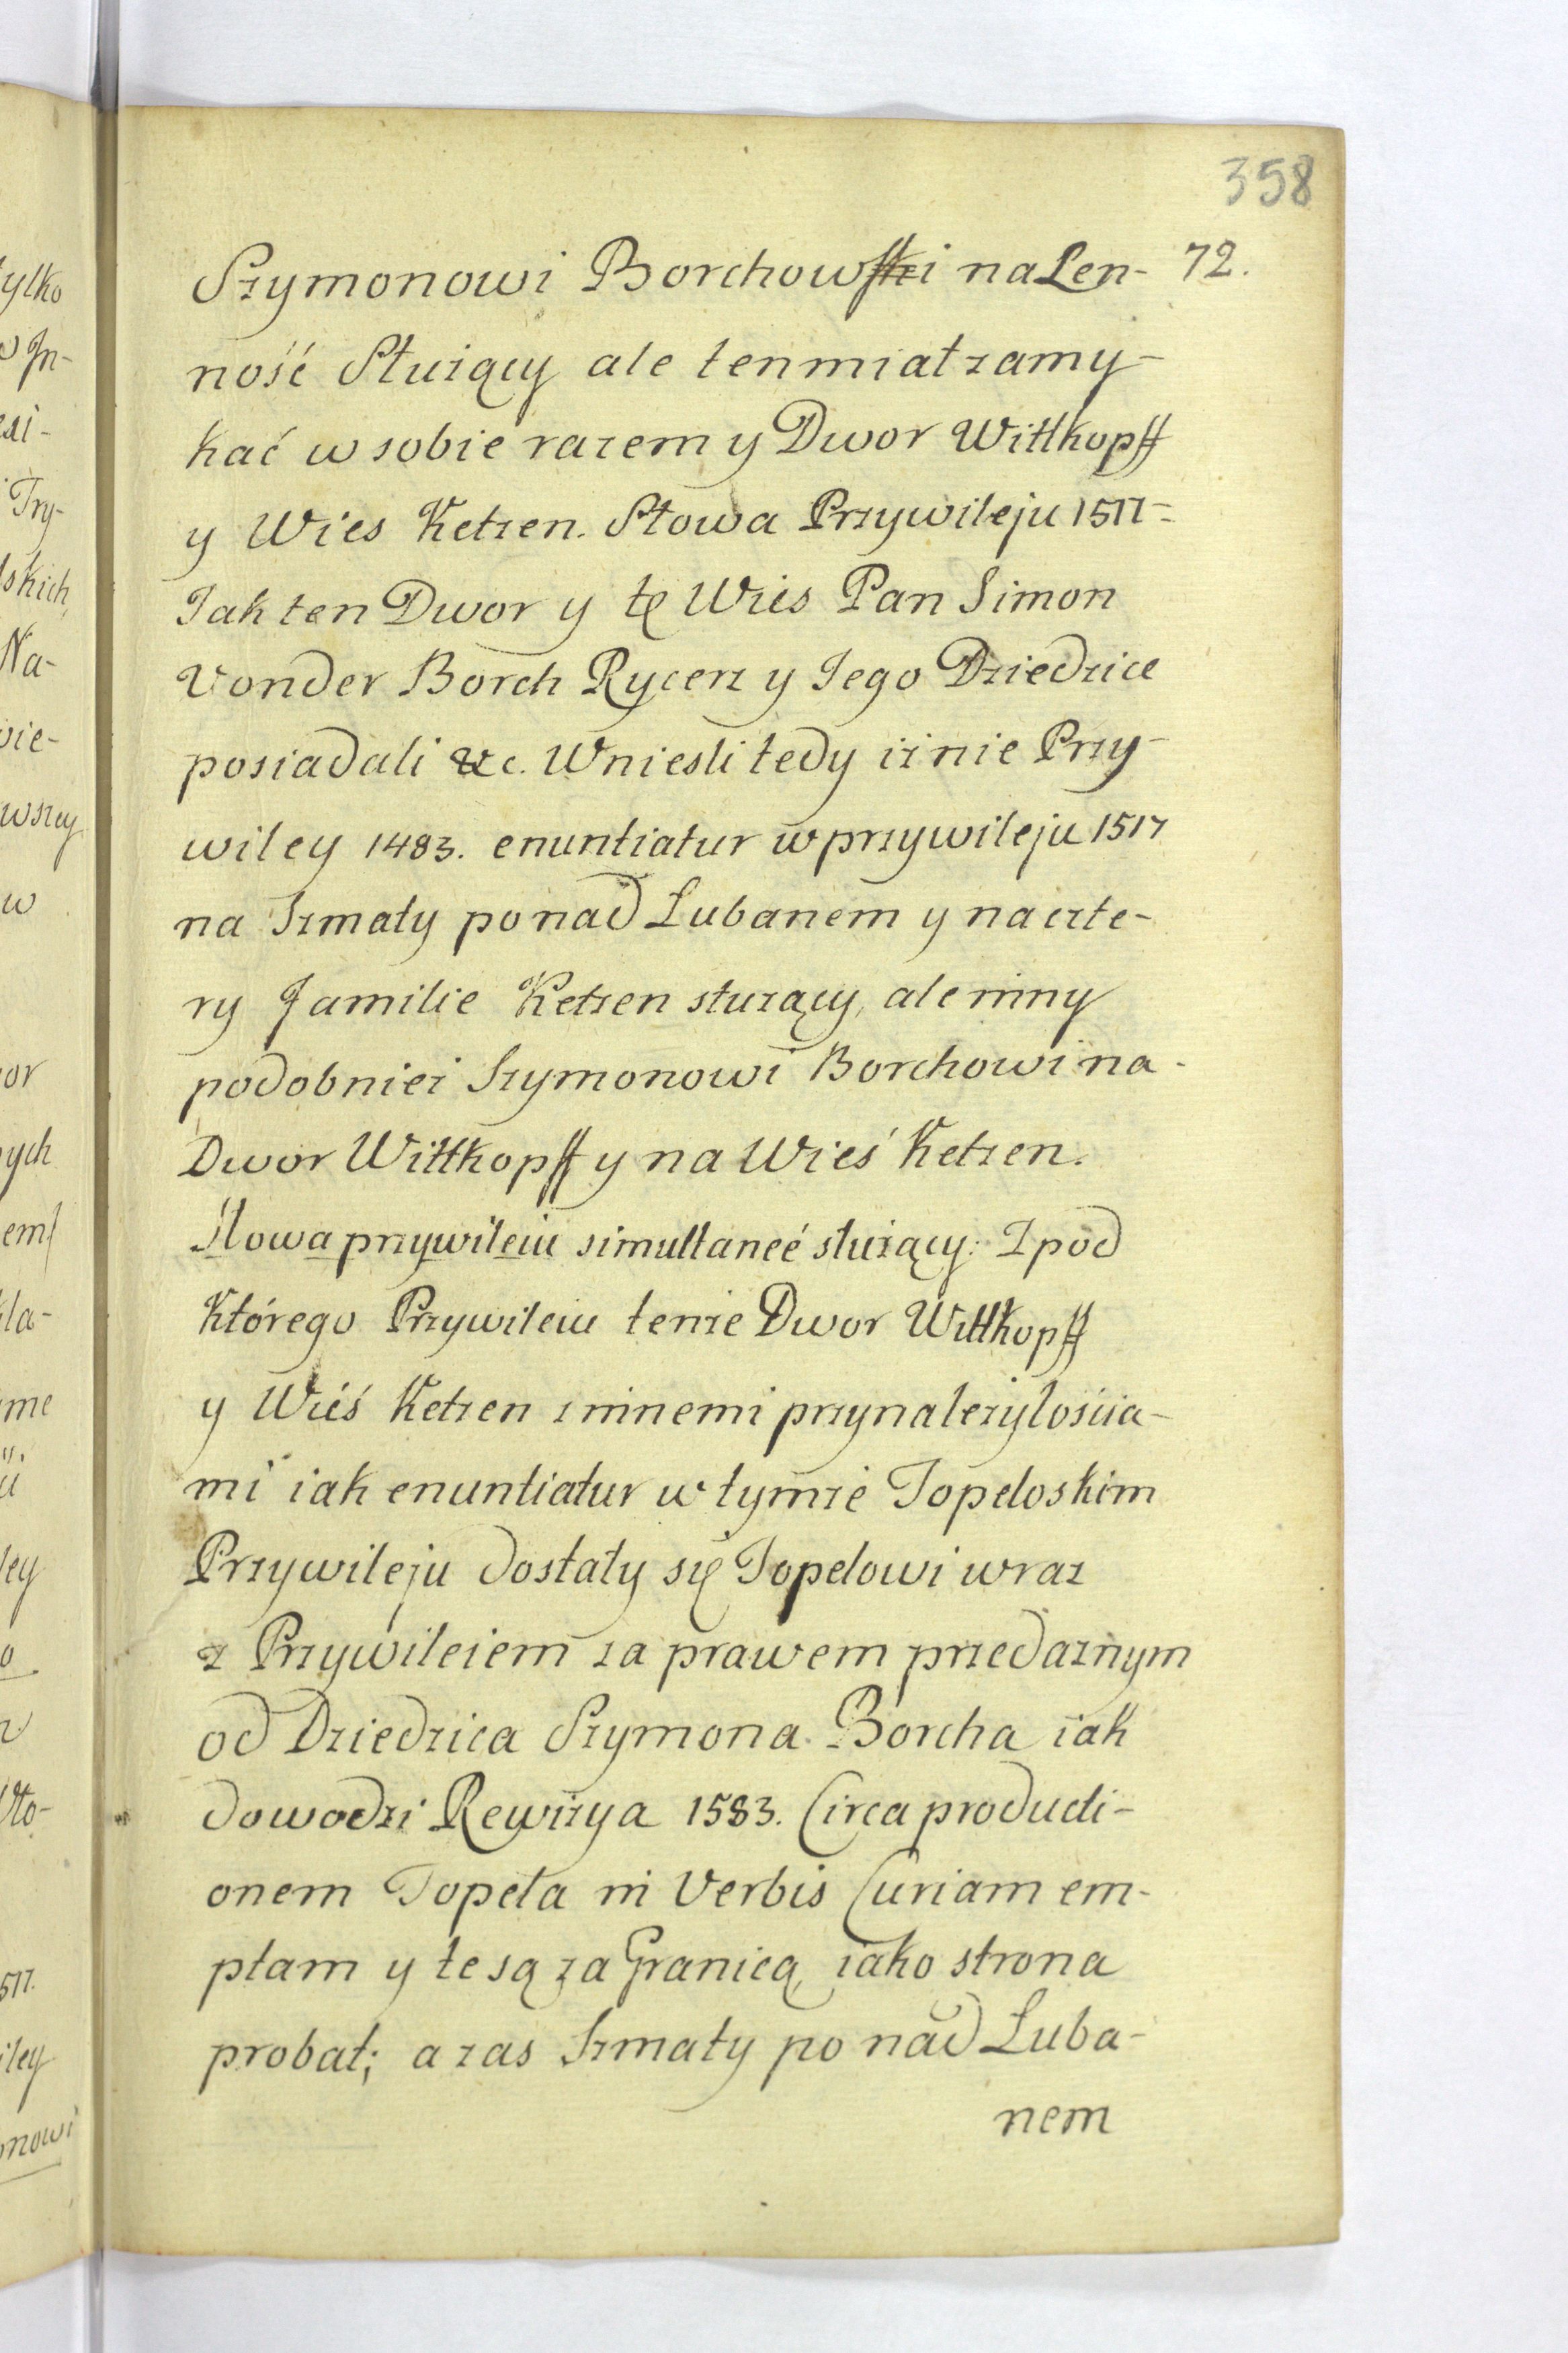 358
72.
Szymonowi Borchowski na Len-
ność Służący ale ten miał zamy-
kać w sobie razem y Dwor Wittkopff
y Wies Ketzen. Słowa Przywileju 1517-
Jak ten Dwor y tę Wies Pan Simon
Vonder Borch Rycerz y Jego Dziedzice
posiadali &c. Wniesli tedy iż nie Przy-
wiley 1483. enuntiatur w przywileju 1517
na Szmaty ponad Lubanem y na czte-
ry Familie Ketzen służący, ale inny
podobnież Szymonowi Borchowi na-
Dwor Wittkopff y na Wieś Ketzen.
Słowa przywileiu simultaneé służący: Z pod
Którego Przywileiu tenże Dwor Wittkopff
y Wieś Ketzen z innemi przynależytościa-
mi iak enuntiatur w tymże Topeloskim
Przywileju dostały się Topelowi wraz
z Przywileiem za prawem przedażnym
od Dziedzica Szymona Borcha iak
dowodzi Rewizya 1583. Circa producti-
onem Topela in Verbis Curiam em-
ptam y te są za Granicą iako strona
probat; a zas Szmaty po nad Luba-
nem
tylko
w Jn-
Try-
skich,
Na-
wie-
wszey
w
ych
kla-
ley
o
517.
iley
onowi